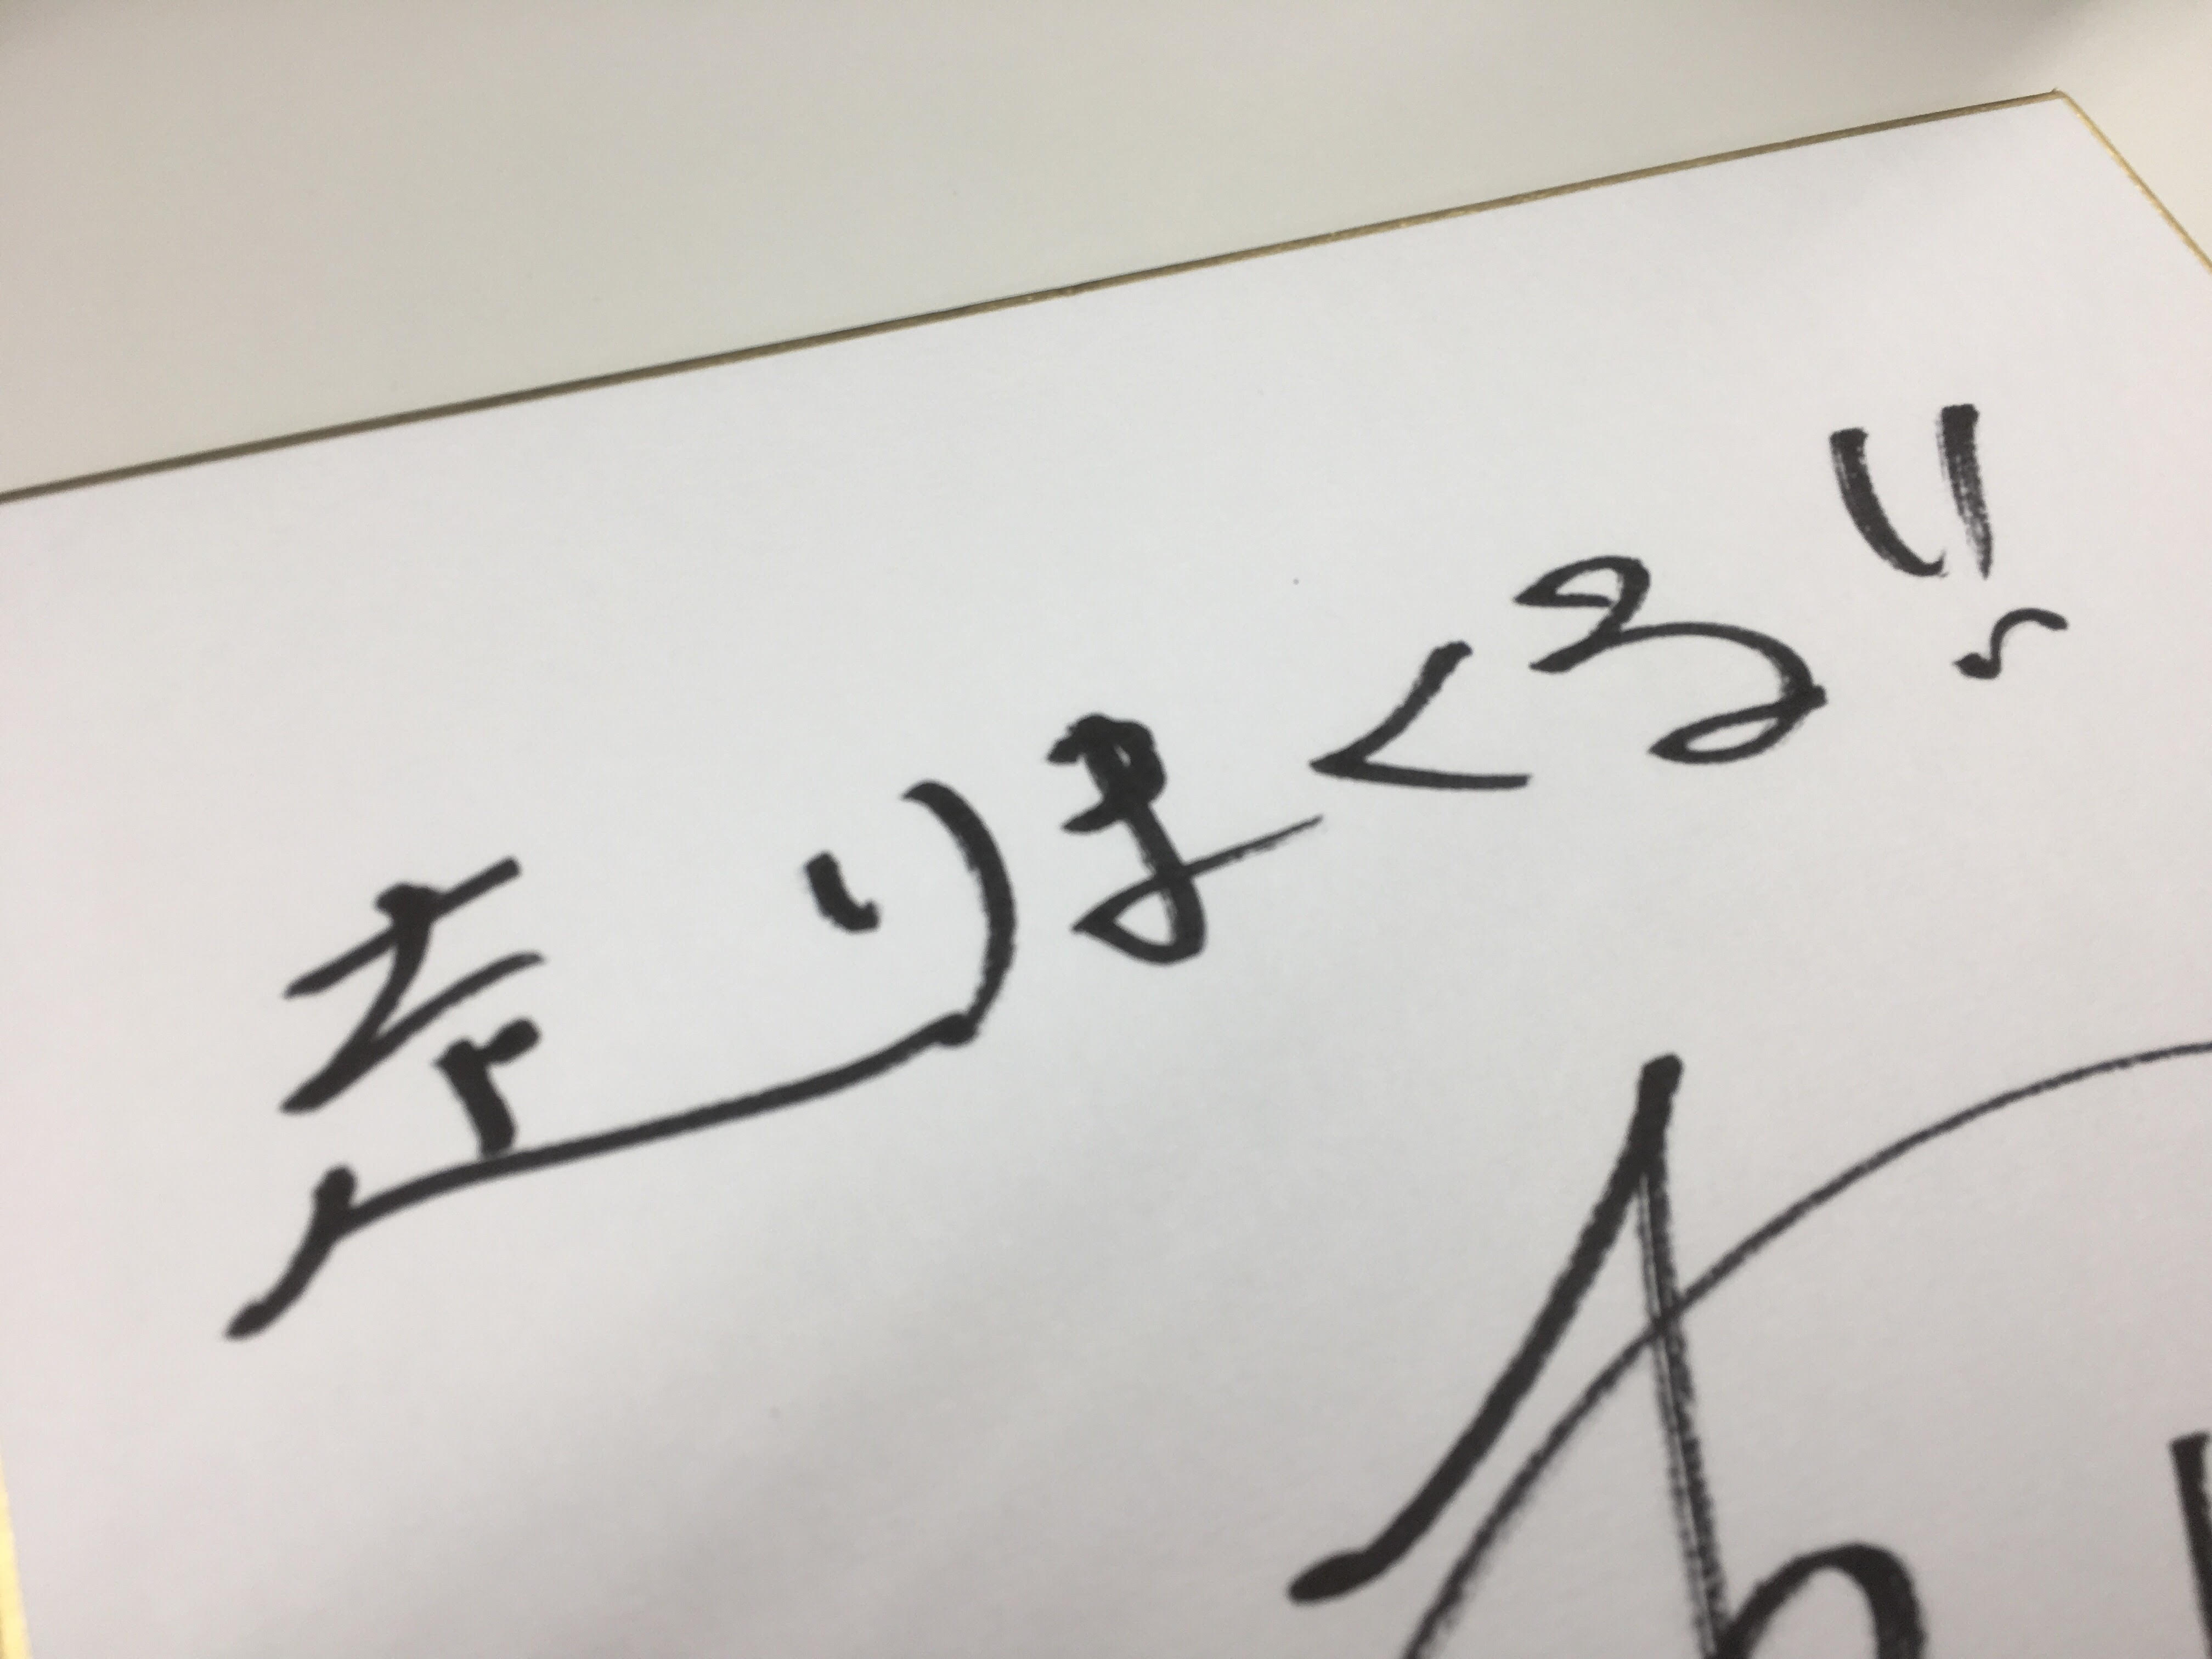 走りまくる!!